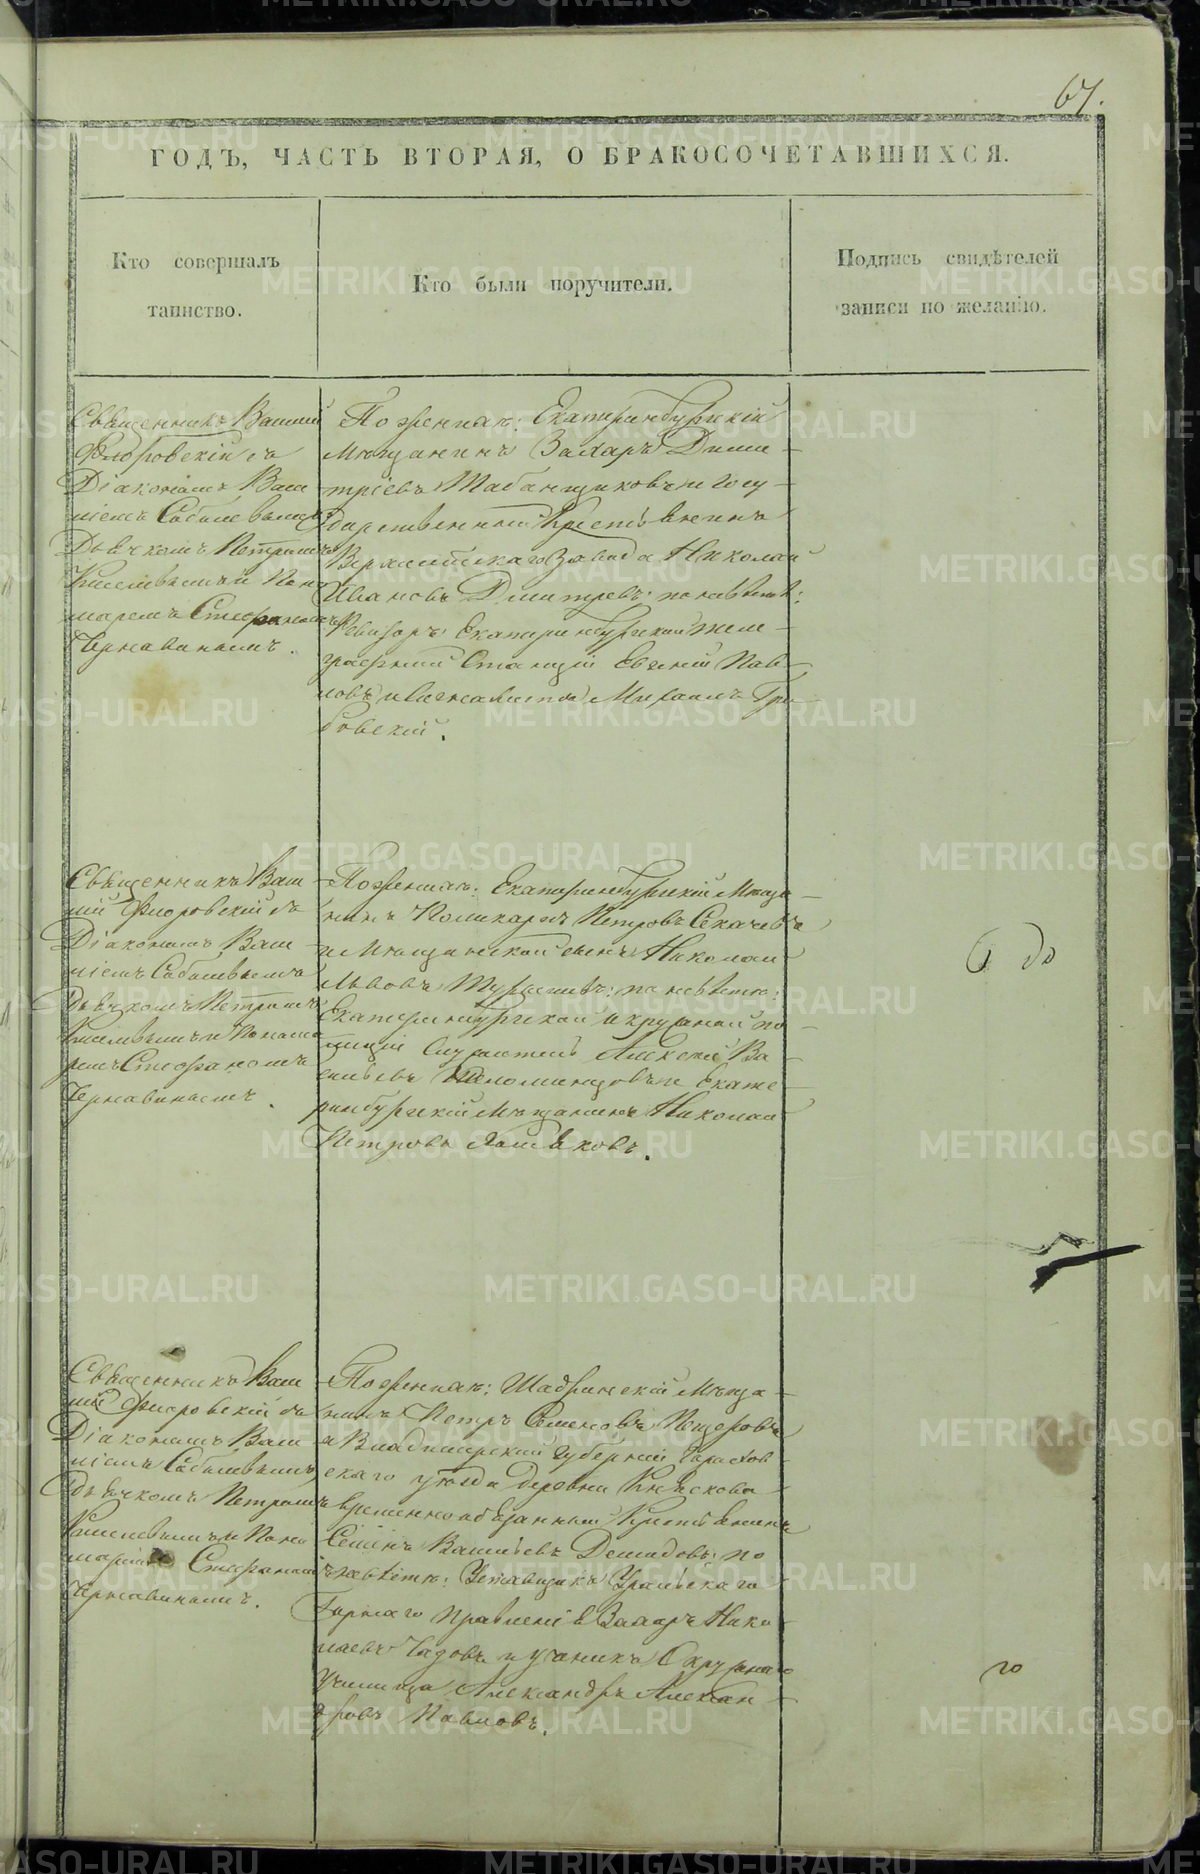 67.
ГОДЪ, ЧАСТЬ ВТОРАЯ, О БРАКОСОЧЕТАВШИХСЯ.
Кто совершалъ
таинство.
Кто были поручители.
Подпись свидѣтелей
записи по желанію.
Священникъ Василій
Флоровскій съ
Діакономъ Васи
ліемъ
Дьячкомъ Петромъ
Киселевымъ и Поно
маремъ Стефаномъ
Чернавинымъ.
По женихѣ: Екатеринбургскій
Мѣщанинъ Захаръ Дими
тріевъ Табанщиковъ и Госу
дарственный Крестьянинъ
Завода Николай
Ивановъ Дмитревъ; по невѣстѣ:
Ревизоръ Екатеринбургской теле
графной Станціи Евгеній Пав
ловъ и Михаилъ Гри
бовскій.
Священникъ Васи
лій Флоровскій съ
Діакономъ Васи
ліемъ
Дьячкомъ Петромъ
Киселевымъ и Понома
ремъ Стефаномъ
Чернавинымъ.
По женихѣ: Екатеринбургскій Мѣща
нинъ Поликарпъ Петровъ Секачевъ
и Мѣщанской сынъ Николай
Львовъ по невѣстѣ:
Екатеринбургской окружной по
лиціи Служитель Алексѣй Ва
сильевъ и Екате
ринбургскій Мѣщанинъ Николай
Петровъ
Священникъ Васи
лій Флоровскій съ
Діакономъ Васи
ліемъ
Дьячкомъ Петромъ
Киселевымъ и Поно
маремъ Стефаномъ
Чернавинымъ.
По женихѣ: Шадринскій Мѣща
нинъ Петръ Семеновъ Пещеровъ
и Владимирской губерніи Горохов
скаго уѣзда деревни
временнообязанный Крестьянинъ
Васильевъ Демидовъ; по
невѣстѣ: Уставщикъ Уральскаго
Горнаго Правленія Захаръ Нико
лаевъ Чадовъ и ученикъ Окружнаго
Училища Александръ Алексан
дровъ Павловъ.
METRIKI.GASO-URAL.RU